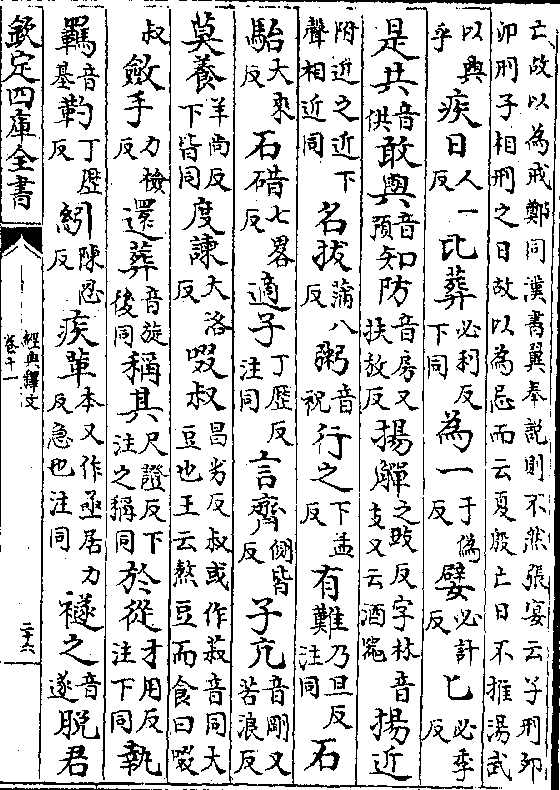 亡故以為戒鄭同漢書翼奉說則不然張宴云子刑卯卯刑子相刑之日故以為忌而云夏殷亡日不推湯武
以與乎疾日人一反比葬必利反下同為一于偽反嬖必計反匕必季反
是共音供敢與音預知防音房又扶放反揚觶之豉反字林音支又云酒器揚近
附近之近下聲相近同名拔蒲八反粥音祝行之下孟反有難乃旦反注同石
駘大來反石碏七畧反適子丁歷反注同言齊側皆反子亢音剛又苦浪反
莫養羊尚反下皆同度諫大洛反啜叔昌劣反叔或作菽音同大豆也王云熬豆而食曰啜
叔斂手力檢反還葬音旋後同稱其尺證反下注之稱同於從才用反注下同執
羈音基靮丁歷反紖陳忍反疾革本又作亟居力反急也注同襚之音遂脫君
欽定四庫全書
經典釋文
卷十一
二十六